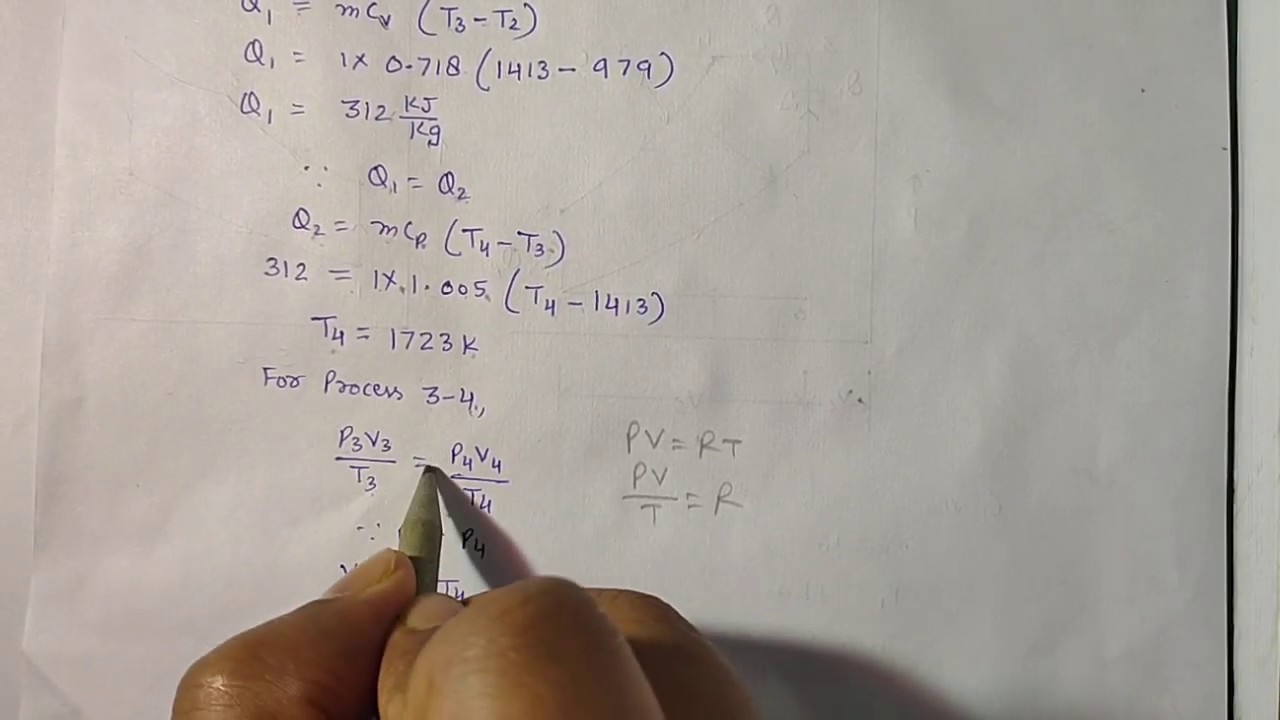 Q₁ = mCᵥ (T₃ – T₂)
Q₁ = 1× 0.718 (1413 – 979)
Q₁ = 312 KJ/Kg
∵ Q₁ = Q₂
Q₂ = mCₚ (T₄ – T₃)
312 = 1×1.005 (T₄ – 1413)
T₄ = 1723 K
For Process 3-4,
P₃V₃/T₃ = P₄V₄/T₄
PV = RT
PV/T = R
∵ P₄
T₄